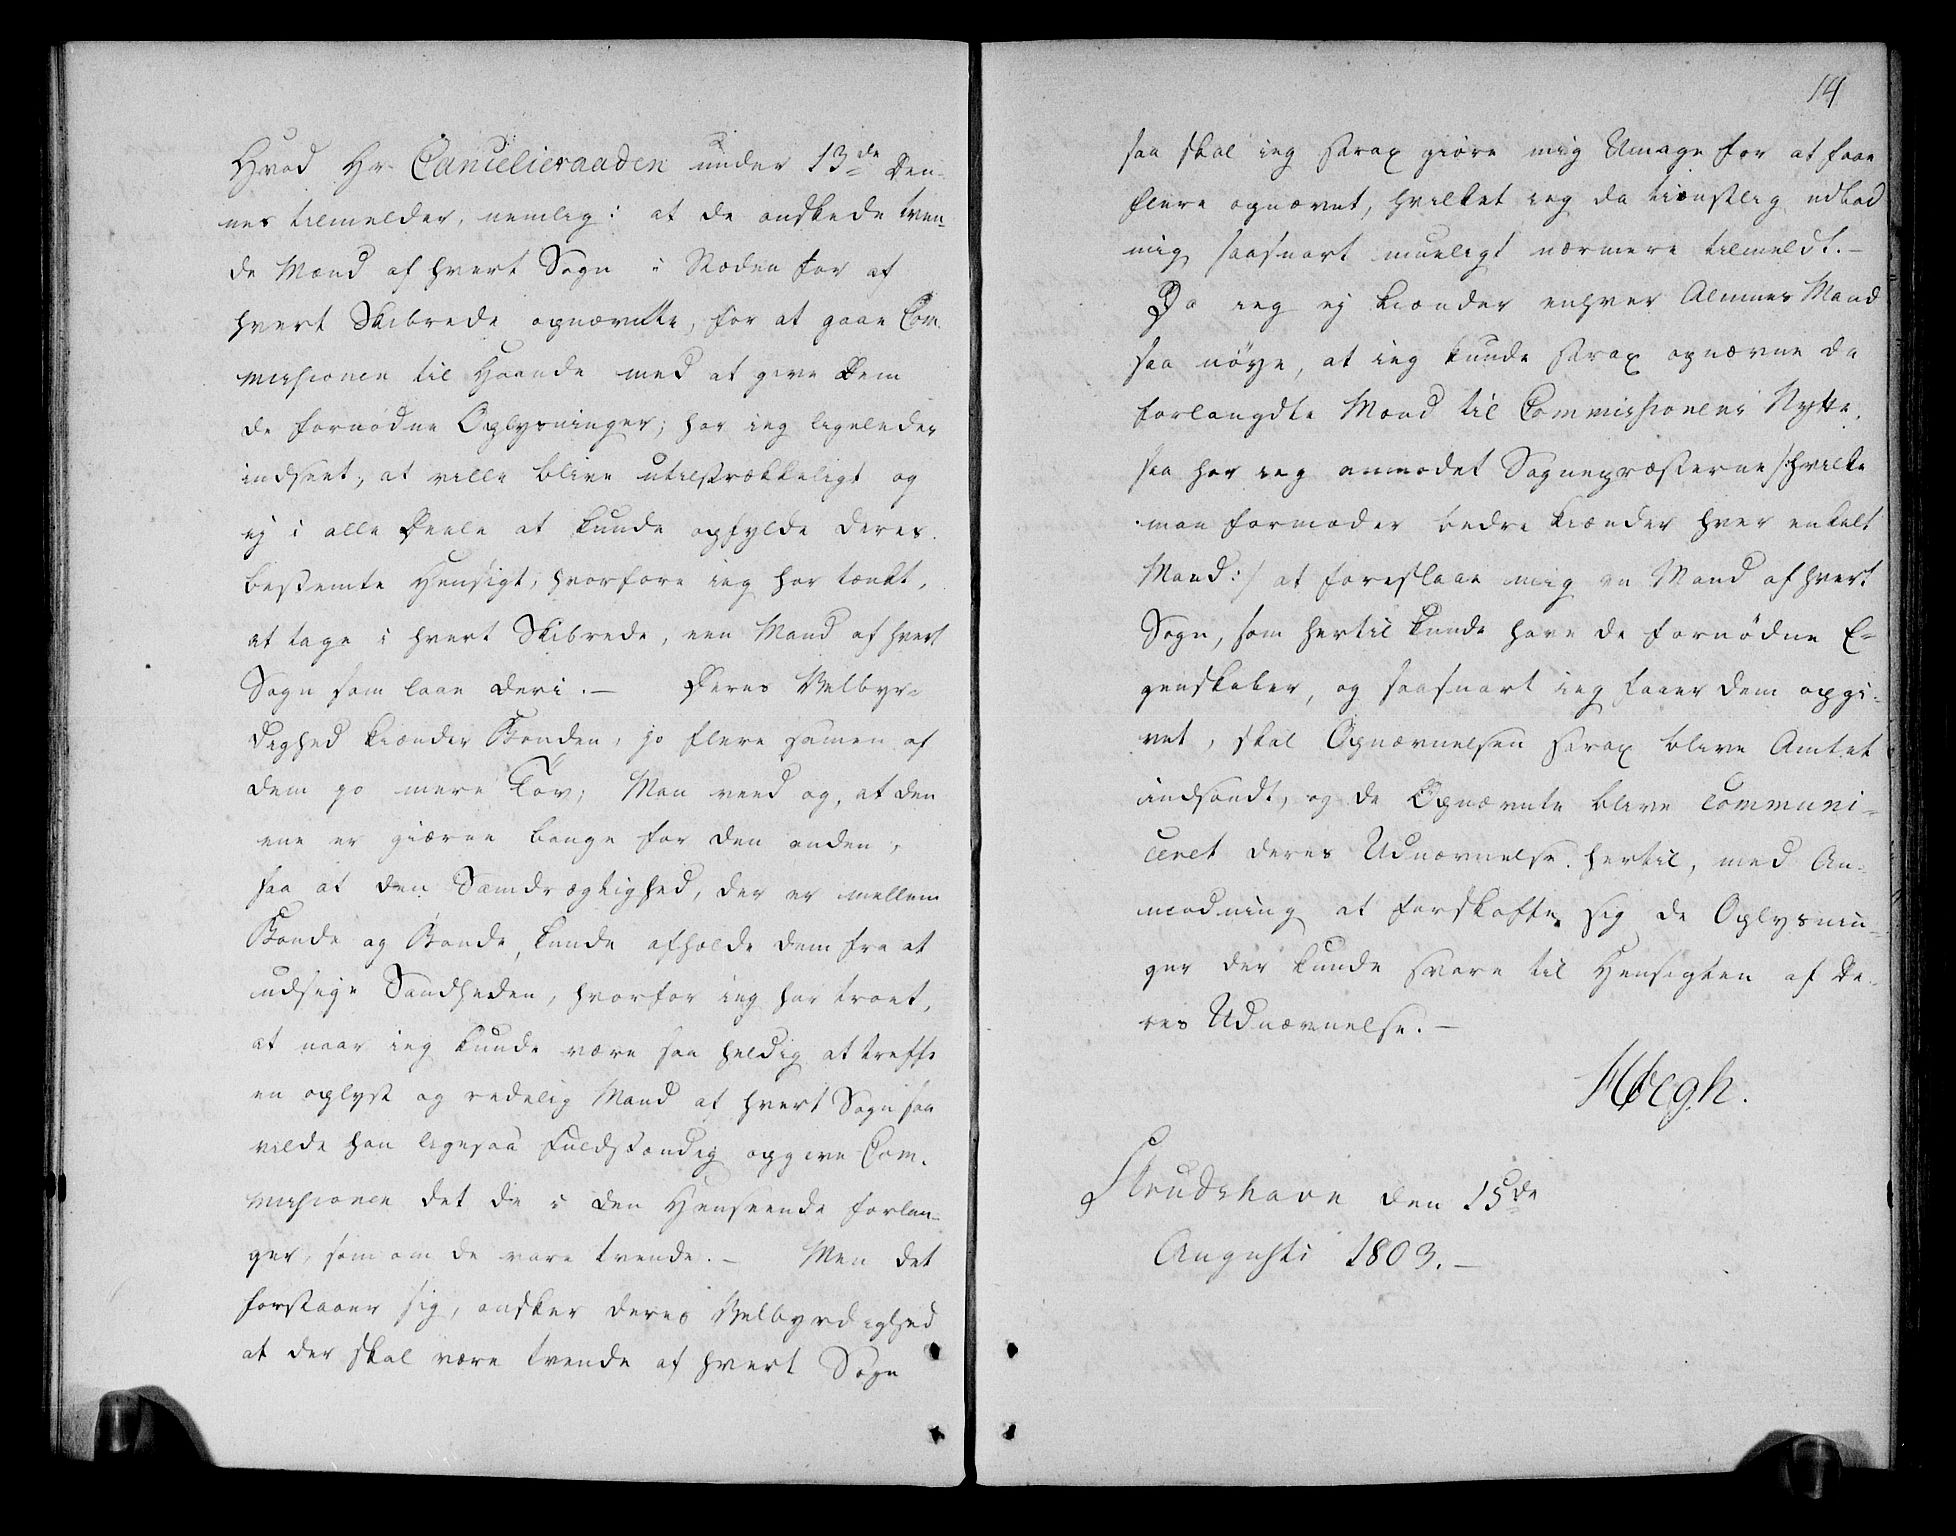 Hvad Hr Cancelieraaden under 13de den-
nes tilmelder, nemlig: at de ønskede tven-
de Mænd af hvert Sogn i Stæden for af
hvert Skibrede opnævnte, for at gaae Com-
missionen til Haande med at give Dem
de fornødne Oplysninger; har ieg ligeledes
indseet, at ville blive utilstrækkeligt og
ej i alle Deele at kunde opfylde deres
bestemte Hensigt, hvorfore ieg har tænkt,
at tage i hvert Skibrede, een Mand af hvert
Sogn som laae deri. — Deres Velbyr-
dighed kiænder Bonden, jo flere samen af
dem jo mere Tøv; Man veed og, at den
ene er giærne bange for den anden,
saa at den Samdrægtighed, der er mellem
Bonde og Bonde, kunde afholde dem fra at
udsige Sandheden, hvorfor ieg har troet,
at naar ieg kunde være saa heldig at treffe
en oplyst og redelig Mand af hvert Sogn saa
vilde han ligesaa fuldstændig opgive Com-
missionen det de i den Henseende forlan-
ger, som om de vare tvende. — Men det
forstaaer sig, ønsker deres Velbyrdighed
at der skal være tvende af hvert Sogn
14
saa skal ieg strax giøre mig Umage for at faae
flere opnævnt, hvilket ieg da tienstlig udbad
mig saasnart mueligt nærmere tilmeldt. —
Da ieg ej kiænder enhver Almues Mand
saa nöye, at ieg kunde strax opnævne de
forlangdte Mænd til Commissionens Nytte,
saa har ieg anmodet Sognepræsterne /:hvilke
man formoder bedre kiænder hver enkelt
Mand:/ at foreslaae mig en Mand af hvert
Sogn, som hertil kunde have de fornødne E-
genskaber, og saasnart ieg faaer dem opgi-
vet, skal Opnævnelsen strax blive Amtet
indsendt, og de Opnævnte blive communi-
ceret deres Udnævnelse hertil, med An-
modning at forskaffe sig de Oplysnin-
ger der kunde svare til Hensigten af De-
res Udnævnelse. —
Høegh.
Strudshavn den 15de
Augusti 1803. —